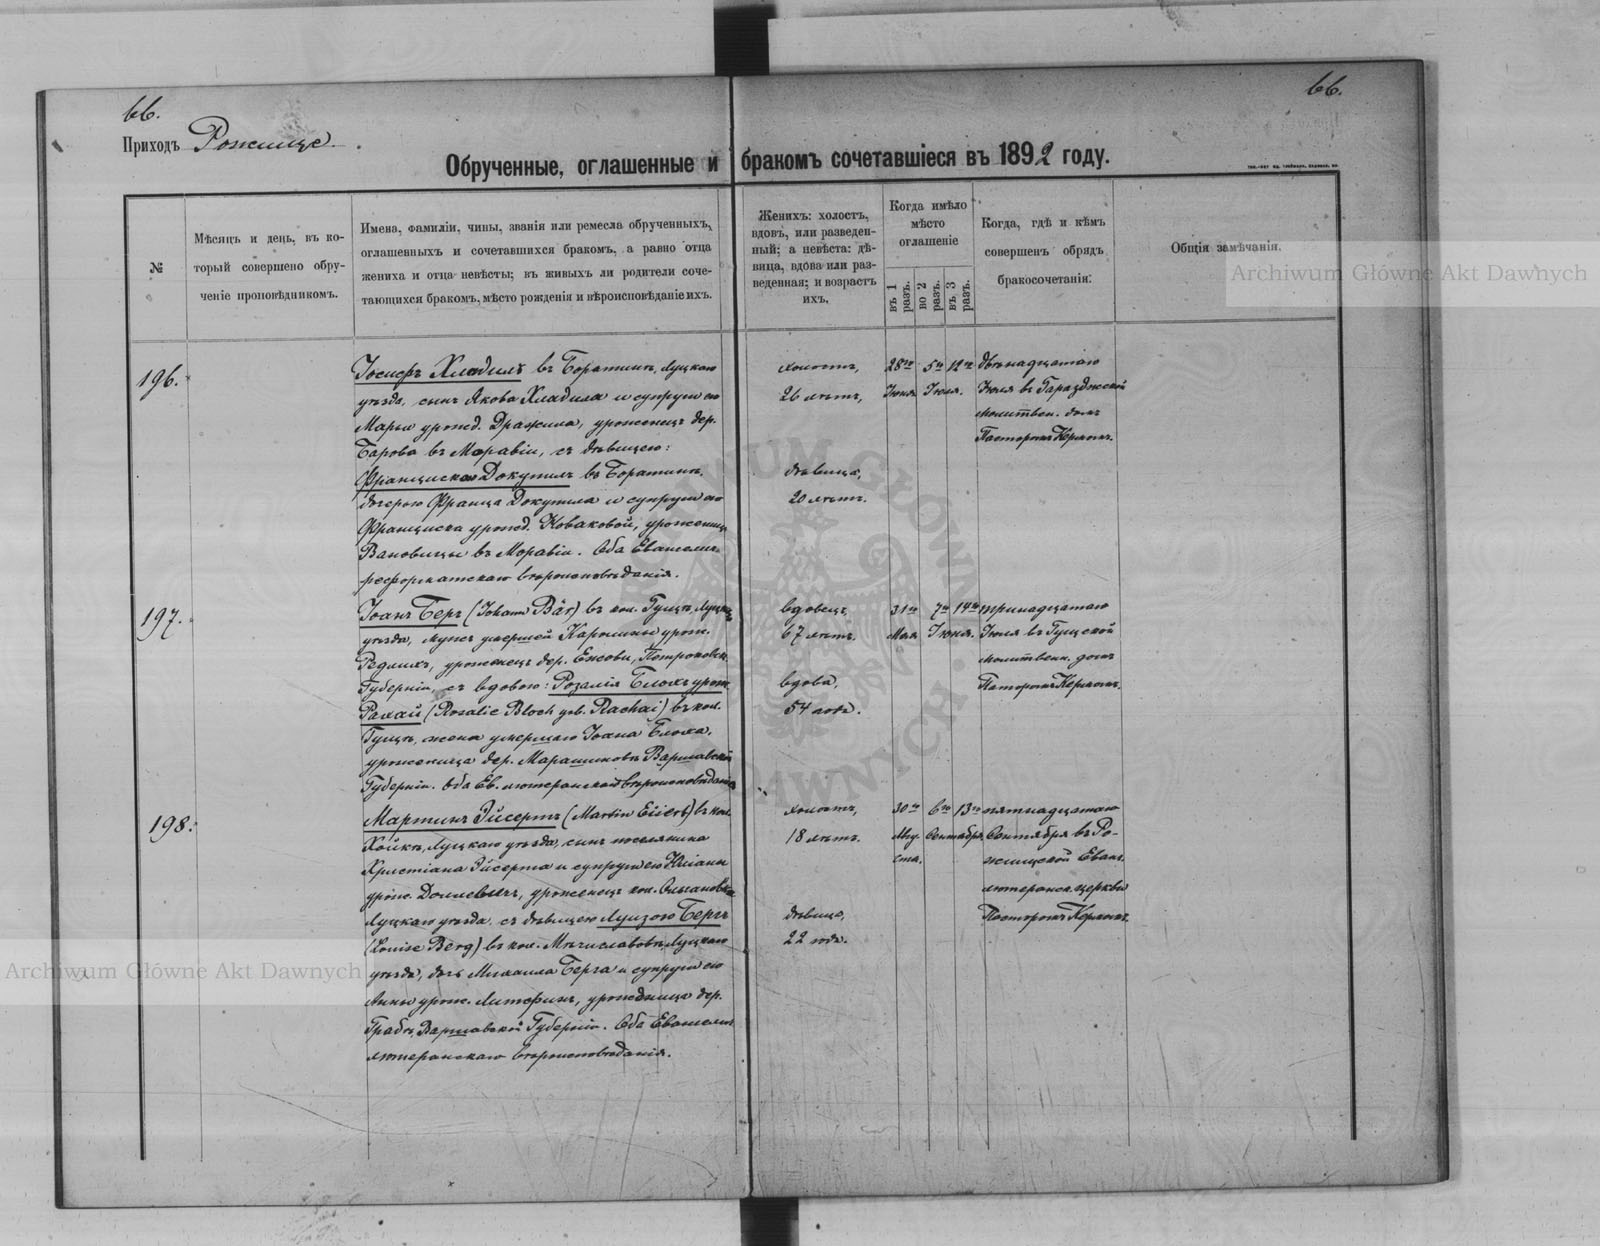 66.
66.
Приходъ Рожище.
Обрученные, оглашенные и бракомъ сочетавшіеся въ 1892 году.
№
Мѣсяцъ и день, въ ко-
торый совершено обру-
ченіе проповѣдникомъ.
Имена, фамиліи, чины, званія или ремесла обрученныхъ,
оглашенныхъ и сочетавшихся бракомъ, а равно отца
жениха и отца невѣсты; въ живыхъ ли родители соче-
тающихся бракомъ, мѣсто рожденія и вѣроисповѣданіе ихъ.
Женихъ: холостъ,
вдовъ, или разведен-
ный; а невѣста: дѣ-
вица, вдова или раз-
веденная; и возрастъ
ихъ.
Когда имѣло
мѣсто
оглашеніе
въ 1
разъ.
во 2
разъ.
въ 3
разъ.
Когда, гдѣ и кѣмъ
совершенъ обрядъ
бракосочетанія.
Общія замѣчанія.
196.
Іосифъ Хладилъ въ Боратинѣ, Луцкаго
уѣзда, сынъ Якова Хладила и супруги его
Марьи урожд. Дражила, уроженецъ дер.
въ Моравіи, съ дѣвицею:
Докупилъ въ Боратинѣ,
дочерью Франца Докупила и супруги его
Франциска урожд. Коваковой, уроженица
въ Моравіи. Оба Евангелич.
реформатскаго вѣроисповѣданія.
холостъ,
26 лѣтъ,
дѣвица,
20 лѣтъ.
28го 5го 12го
Іюня Іюля.
двѣнадцатаго
Іюля въ
молитвен. домѣ
Пасторомъ Кермомъ.
197.
Іоанъ Беръ (Johann Bär) въ кол. Гущѣ, Луцкаго
уѣзда, мужъ умершей Каролины урож.
Редлихъ, уроженецъ дер. Петроковск.
Губерніи, съ вдовою: Розалія Блохъ урож.
Рахай (Rosalie Bloch geb. Rachai) въ кол.
Гущѣ, жена умершаго Іоана Блоха,
уроженица дер. Варшавской
Губерніи. Оба Ев. лютеранскаго вѣроисповѣданія
вдовецъ,
67 лѣтъ.
вдова,
54 года.
31го 7го 14го
Мая. Іюня.
тринадцатаго
Іюля въ Гущской
молитвенн. домѣ
Пасторомъ Кермомъ.
198.
Мартинъ Эйсертъ (Martin Eisert) въ кол.
Луцкаго уѣзда, сынъ поселянина
Христіана Эйсерта и супруги его Юліаны
урож. уроженецъ кол.
Луцкаго уѣзда, съ дѣвицею Луизою Бергъ
(Louise Berg) въ кол. Мѣчиславовѣ, Луцкаго
уѣзда, дочь Михаила Берга и супруги его
Анны урож. уроженица дер.
Варшавской Губерніи. Оба Евангелич.
лютеранскаго вѣроисповѣданія.
холостъ,
18 лѣтъ.
дѣвица,
22 года.
30го 6го 13го
Авгу- Сентября.
ста.
пятнадцатаго
Сентября въ Ро-
жищской Еванг.
лютеранск. церкви
Пасторомъ Кермомъ.
Archiwum Główne Akt Dawnych
Archiwum Główne Akt Dawnych